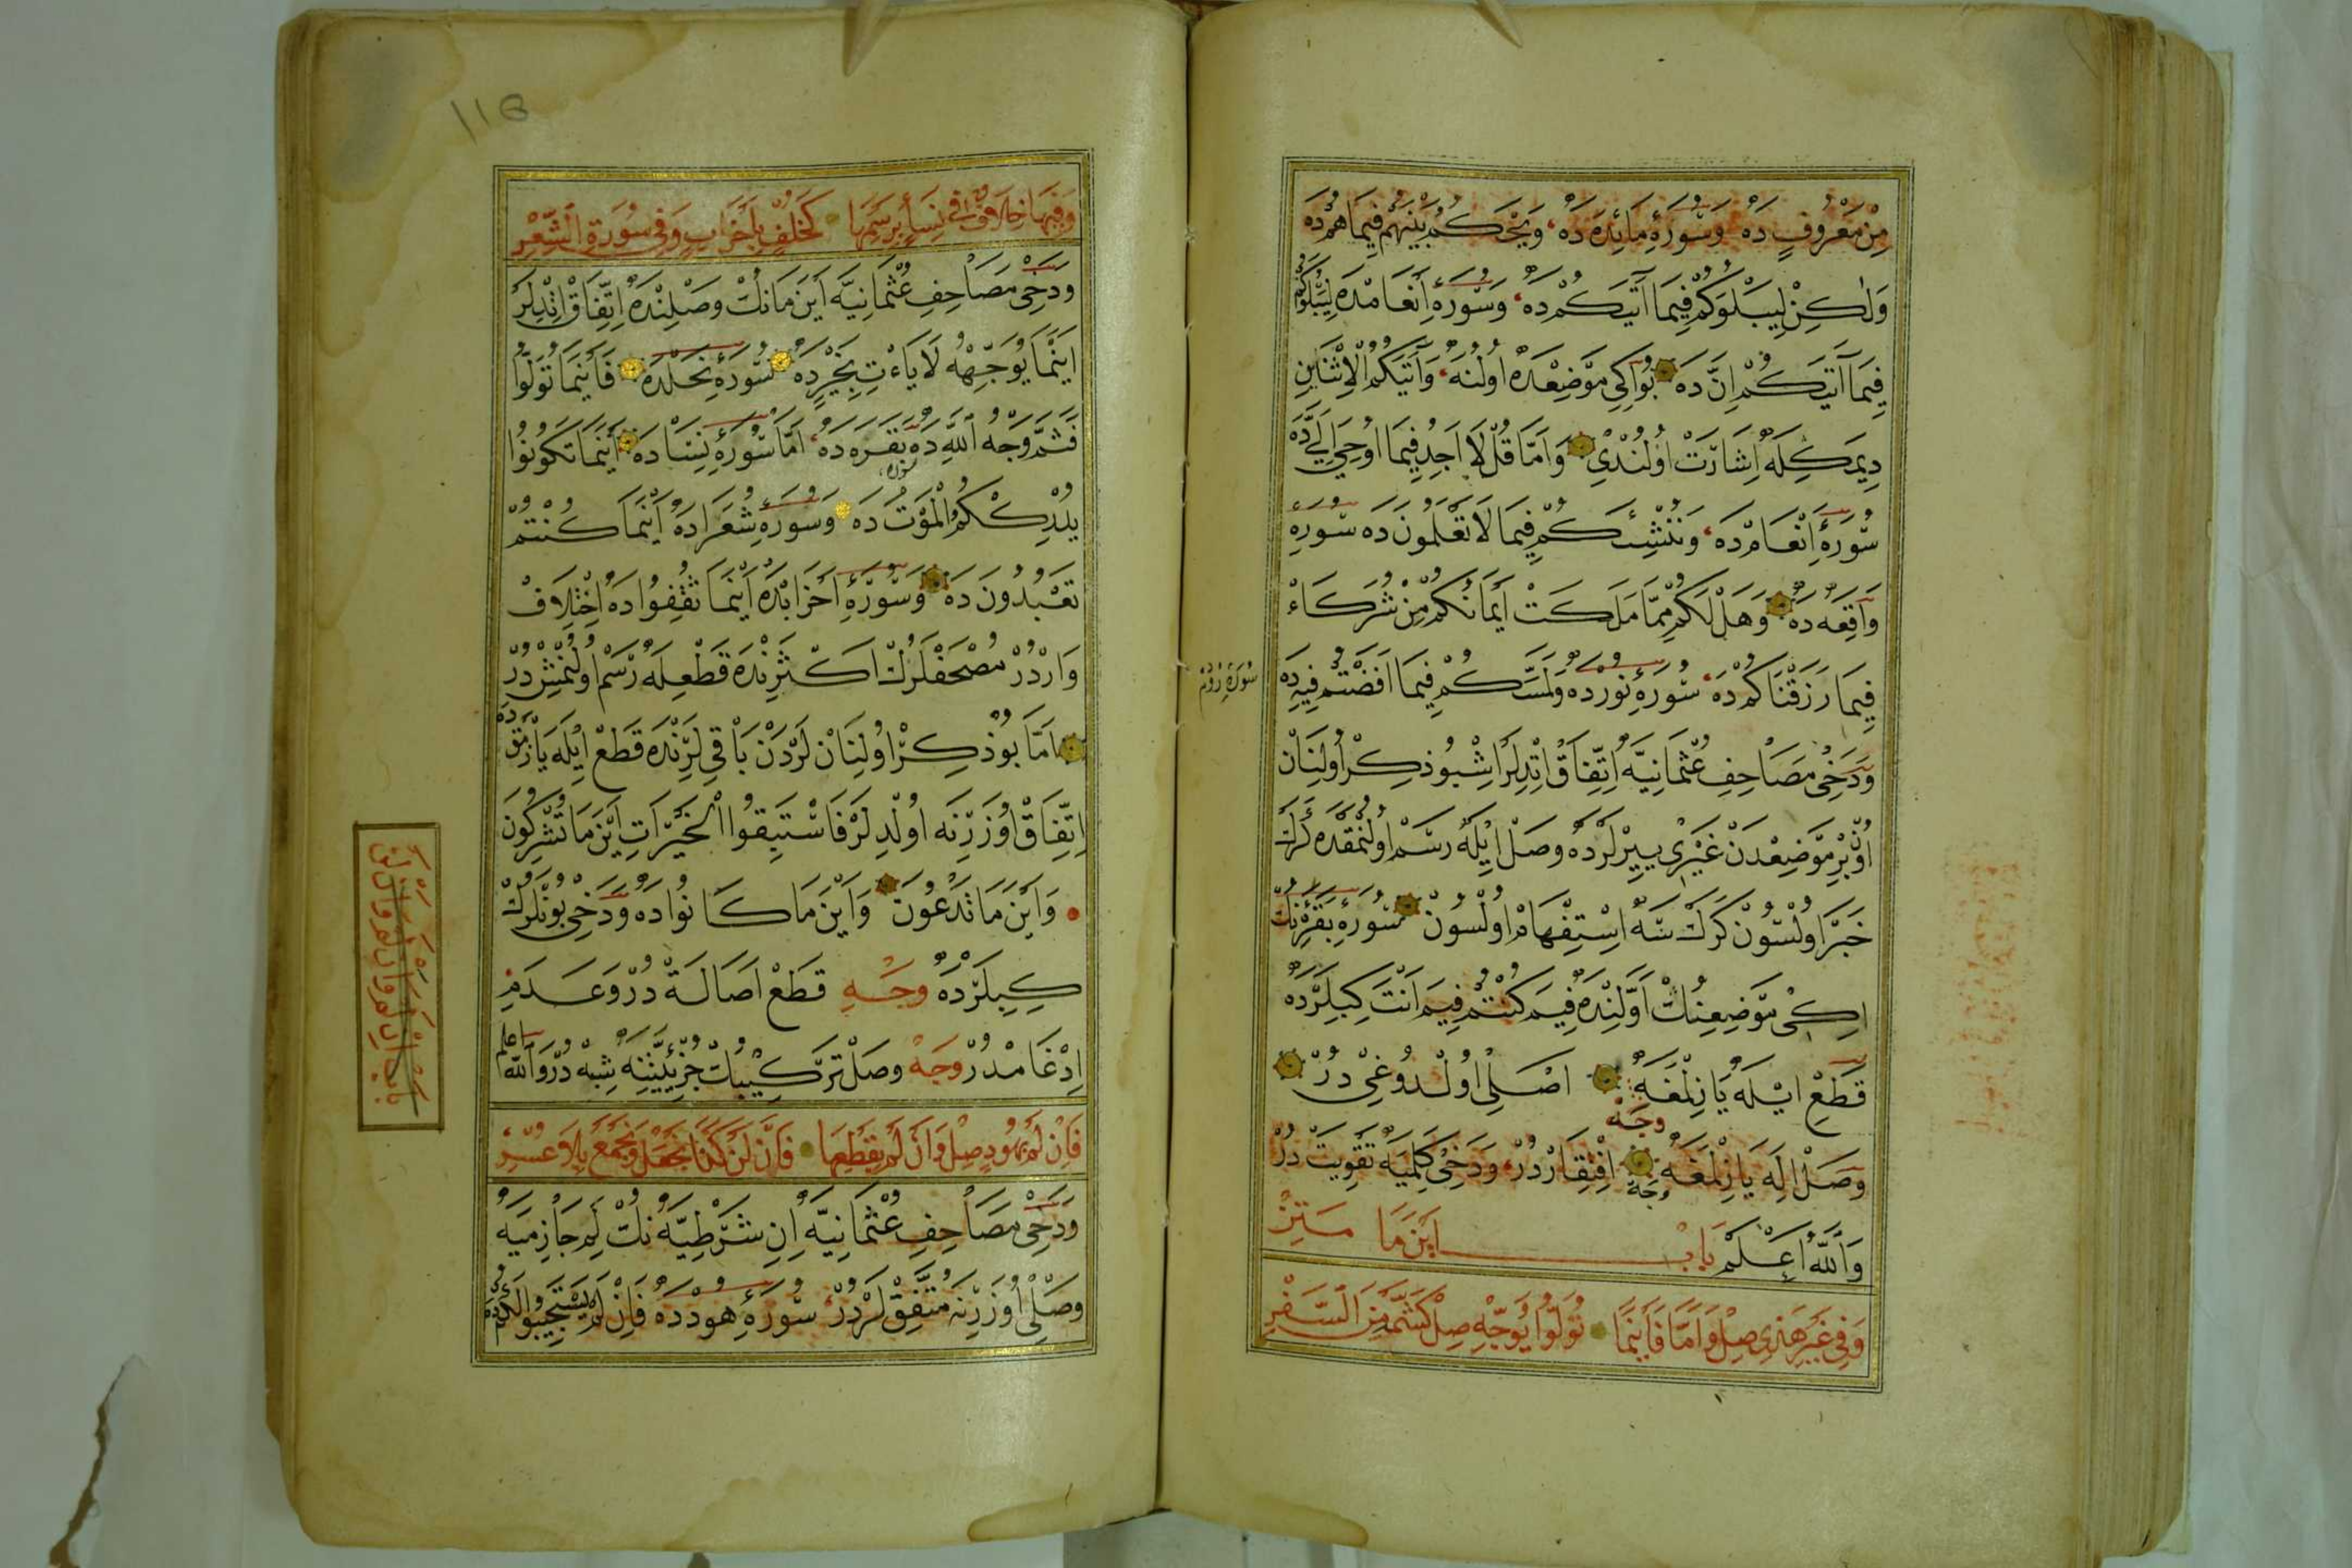 مِنْ مَعْرُوفٍ دَه وَسُورَۀِ مَائِدَه دَه وَيَحْكُمُ بَيْنَهُمْ فِيمَا هُمْ دَه
وَلٰكِنْ لِيَبْلُوَكُمْ فِيمَا آتَيكُمْ دَه وَسُورَۀِ اَنْعَامْدَه لِيَبْلُوَكُمْ
فِيمَا آتَيكُمْ اِنَّ دَه بُو اِكِى مَوْضِعْدَه اُولُنَه وَآتَيكُمُ الْاِثْنَيْنِ
دِيمَكِلَه اِشَارَتْ اُولُنْدِى وَاَمَّا قُلْ لَا اَجِدُ فِيمَا اُوحِيَ اِلَيَّ دَه
سُورَۀِ اَنْعَامْ دَه وَنُنْشِئَكُمْ فِيمَا لَا تَعْلَمُونَ دَه سُورَۀِ
وَاقِعَه دَه وَهَلْ لَكُمْ مِمَّا مَلَكَتْ اَيْمَانُكُمْ مِنْ شُرَكَاءْ
فِيمَا رَزَقْنَاكُمْ دَه سُورَۀِ نُورْدَه وَلَمَسَّكُمْ فِيمَا اَفَضْتُمْ فِيهِ دَه
سُورَۀِ رُومْ
وَدَخِى مَصَاحِفِ عُثْمَانِيَّه اِتِّفَاقْ اِتْدِلَرْ اِشْبُو ذِكِرْ اُولِنَانْ
اُونْ بِرْ مَوْضِعْدَنْ غَيْرِى يِيرْلَرْدَه وَصَلْ اِيلَه رَسْمْ اُولُنْمَقْدَه كَرَكْ
خَبَرْ اُولْسُونْ كَرَكْ سَه اِسْتِفْهَامْ اُولْسُونْ سُورَۀِ بَقَرَنِكْ
اِكِى مَوْضِعِنِكْ اَوَّلِنْدَه فِيمَ كُنْتُمْ فِيمَ اَنْتَ كِبِلَرْدَه
قَطْعِ اِيْلَه يَازِلْمَغَه وَجْه اَصْلِى اُولْدُوغِى دُرْ
وَصَلْ اِلَه يَازِلْمَغَه وَجْه اِفْتِقَارْدُرْ وَدَخِى كَلِمَيَه تَقْوِيَتْ دُرْ
وَاَللّٰهُ اَعْلَمْ بَابْ اَيْنَ مَا
وَفِي غَيْرِ هٰذِى صِلْ وَاَمَّا فَاَيْنَمَا تُوَلُّوا يُوَجِّهْ صِلْ
وَفِيهَا خِلَافٌ فِي نِسَاءٍ بِرَسْمِهَا كَخُلْفٍ بِاَحْزَابٍ وَفِي سُورَةِ الشِّعْرِ
وَدَخِى مَصَاحِفِ عُثْمَانِيَّه اَيْنَ مَانِكْ وَصْلِنْدَه اِتِّفَاقْ اِتْدِلَرْ
اَيْنَمَا يُوَجِّهْهُ لَا يَأْتِ بِخَيْرٍ دَه سُورَۀِ نَحْلْدَه فَاَيْنَمَا تُوَلُّوا
فَثَمَّ وَجْهُ اللّٰهِ دَه بَقَرَه دَه اَمَّا سُورَۀِ نِسَادَه اَيْنَمَا تَكُونُوا
سُورَه
يُدْرِكْكُمُ الْمَوْتُ دَه وَسُورَۀِ شُعَرَادَه اَيْنَمَا كُنْتُمْ
تَعْبُدُونَ دَه وَسُورَۀِ اَحْزَابْدَه اَيْنَمَا ثُقِفُوا دَه اِخْتِلَافْ
وَارْدُرْ مُصْحَفْلَرُكْ اَكْثَرِنْدَه قَطْعِلَه رَسْمْ اُولُنْمِشْ دُرْ
اَمَّا بُو ذِكِرْ اُولِنَانْ لَرْدَنْ بَاقِى لَرِنْدَه قَطَعْ اِيْلَه يَازِلْمَقْدَه
اِتِّفَاقْ اُوزَرِنَه اُولْدِلَرْ فَاسْتَبِقُوا الْخَيْرَاتِ اَيْنَ مَا تُشْرِكُونَ
وَاَيْنَ مَا تَدْعُونَ وَاَيْنَ مَا كَانُوا دَه وَدَخِى بُونْلَرُكْ
كِبِلَرْدَه وَجْهِ قَطَعْ اَصَالَةْ دُرْ وَعَدَمِ
اِدْغَامْدُرْ وَجْهْ وَصَلْ تَرْكِيبُكْ جُزْئِيَّتِنَه شِبْهْ دُرْ وَاَللّٰهُ اَعْلَم
فَاِنْ لَمْ بِهُودٍ صِلْ وَاَنْ لَمْ بِقَطْعِهَا فَاَنْ لَنْ كَذَا نَجْعَلْ وَنَجْمَعْ بِلَا عُسْرِ
وَدَخِى مَصَاحِفِ عُثْمَانِيَّه اِنِ شَرْطِيَّه نُكْ لَمِ جَازِمَيَه
وَصْلِى اُوزَرِنَه مُتَّفِقْ لَرْدُرْ سُورَۀِ هُودْدَه فَاِنْ لَمْ يَسْتَجِيبُوا لَكُمْ دَه